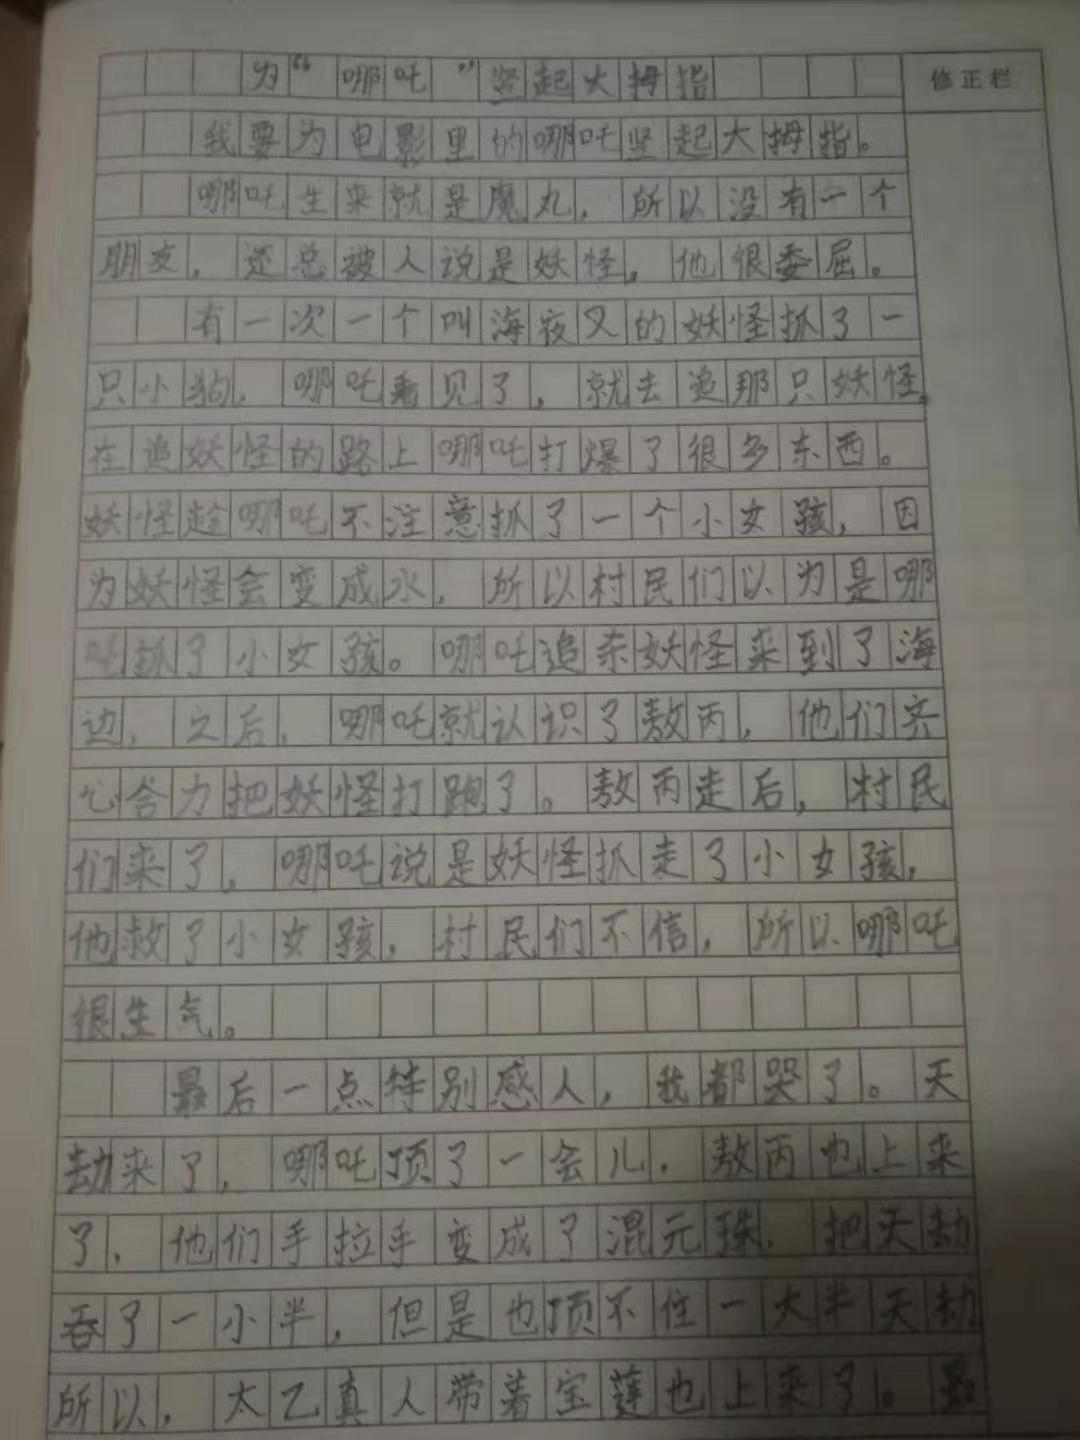 为“哪吒”竖起大拇指
修正栏
我要为电影里的哪吒竖起大拇指。
哪吒生来就是魔丸，所以没有一个
朋友，还总被人说是妖怪，他很委屈。
有一次一个叫海夜叉的妖怪抓了一
只小狗，哪吒看见了，就去追那只妖怪，
在追妖怪的路上哪吒打爆了很多东西。
妖怪趁哪吒不注意抓了一个小女孩，因
为妖怪会变成水，所以村民们以为是哪
吒抓了小女孩。哪吒追杀妖怪来到了海
边，之后，哪吒就认识了敖丙，他们齐
心合力把妖怪打跑了。敖丙走后，村民
们来了，哪吒说是妖怪抓走了小女孩，
他救了小女孩，村民们不信，所以哪吒
很生气。
最后一点特别感人，我都哭了。天
劫来了，哪吒顶了一会儿，敖丙也上来
了，他们手拉手变成了混元珠，把天劫
吞了一小半，但是也顶不住一大半天劫
所以，太乙真人带着宝莲也上来了。最